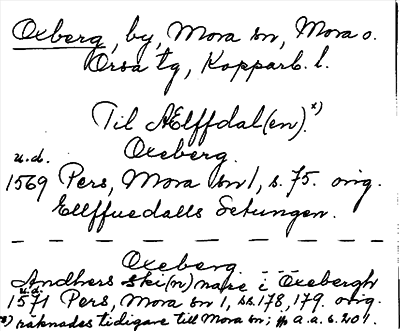 Oxberg, by, Mora sn, Mora o.
Orsa tg, Kopparb. l.
Til AElffdal(en).x)
Oxeberg.
u.d.
1569 Pers, Mora sn 1, s. 75. orig.
Ellffuedalls Setungen.
Oxeberg.
Andhers Ski(n)nare i Oxebergh
u.d.
1571 Pers, Mora sn 1, ss. 178, 179. orig.
x) räknades tidigare till Mora sn; a.a. s. 201.